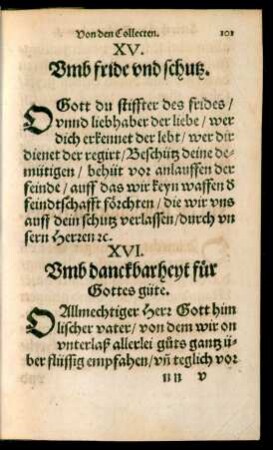 Von den Collecten. 101
XV.
Vmb fride vnd schutz.
O Gott du stiffter des frides /
vnnd liebhaber der liebe / wer
dich erkennet der lebt / wer dir
dienet der regirt / Beschütz deine de-
mütigen / behüt vor anlauffen der
feinde / auff das wir keyn waffen ď
feindtschafft förchten / die wir vns
auff dein schutz verlassen / durch vn
sern Herren ꝛc.
XVI.
Vmb danckbarheyt für
Gottes güte.
O Allmechtiger Herr Gott him
lischer vater / von dem wir on
vnterlaß allerlei gůts gantz ü-
ber flüssig empfahen / vñ teglich vor
nn v